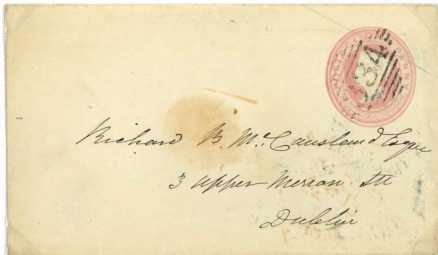 34
Richard B. McCausland Esqre
3 Upper Merion Stt
Dublin